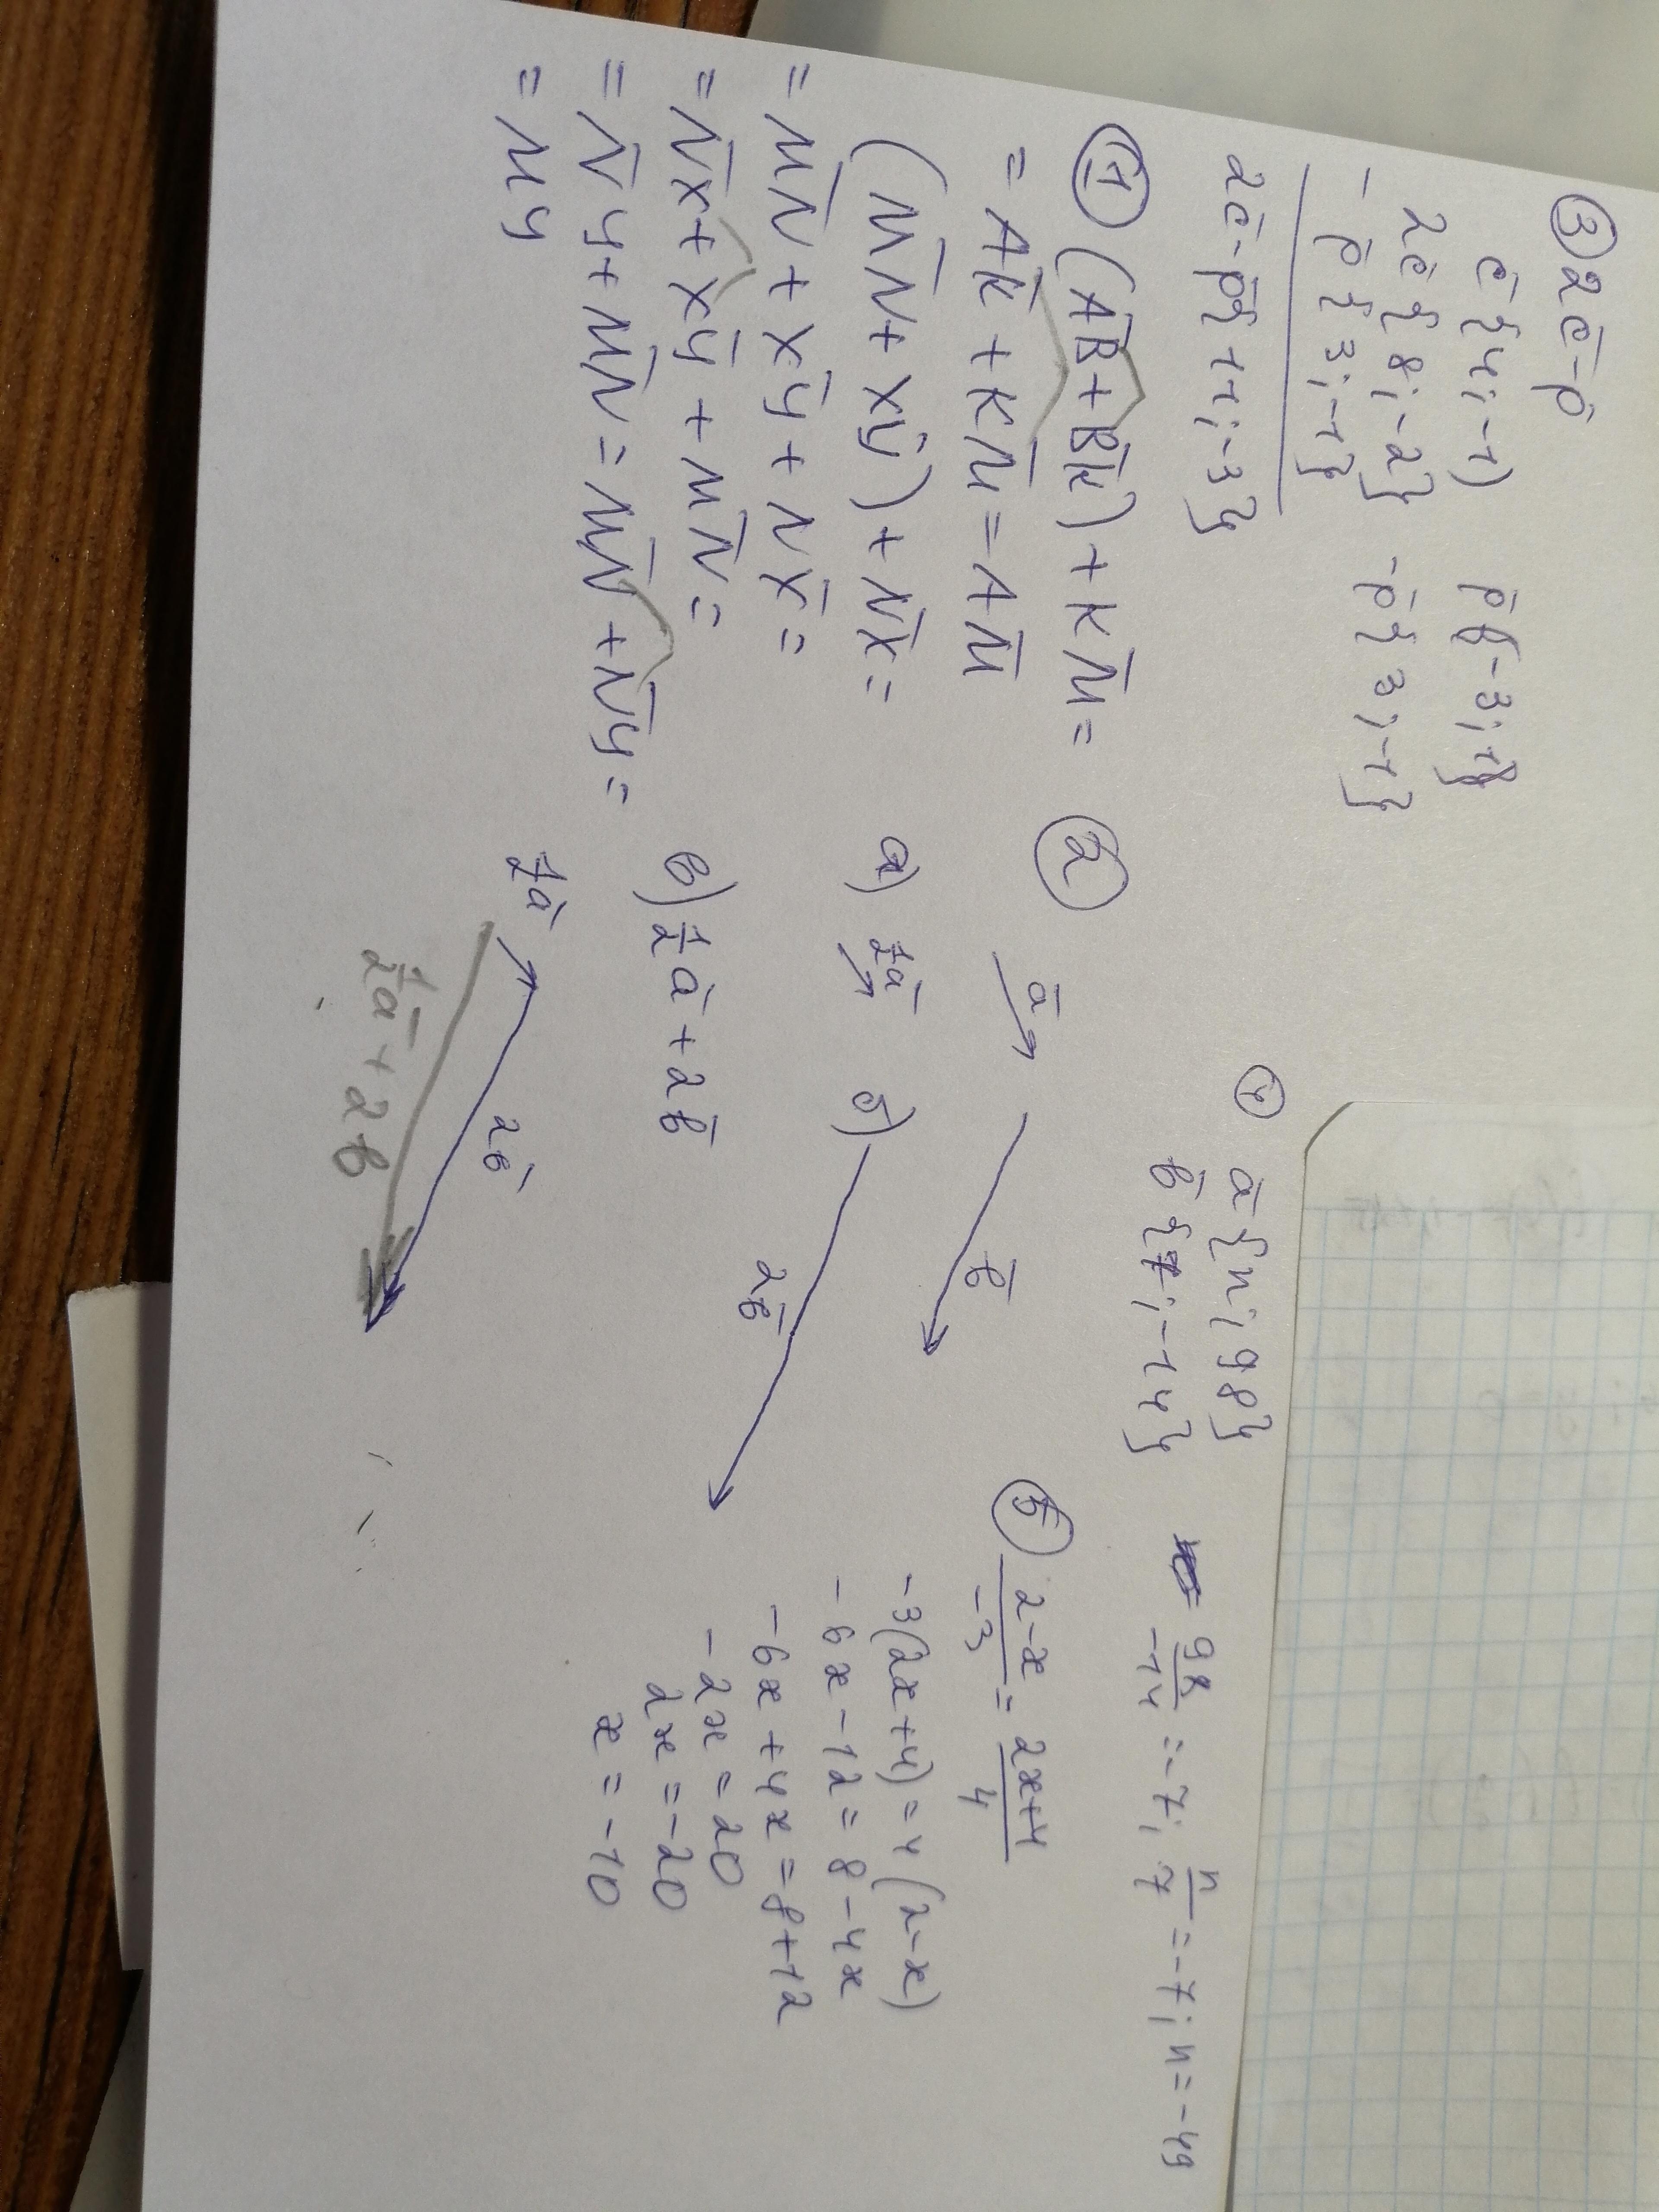 ③ 2c̄-p̄
c̄{4;-1) p̄{-3;1}
2c̄{8;-2} -p̄{3;-1}
- p̄{3;-1}
2c̄-p̄{11;-3}
① (A̅B̅+B̅K̅)+K̅M̅=
=A̅K̅+K̅M̅=A̅M̅
(M̅N̅+X̅Y̅)+N̅X̅=
=M̅N̅+X̅Y̅+N̅X̅=
=N̅X̅+X̅Y̅+M̅N̅=
=N̅Y̅+M̅N̅=M̅N̅+N̅Y̅=
=MY
②
ā b̄
а) ½ā б) 2b̄
в) ½ā+2b̄
½ā 2b̄
½ā+2b
④ ā{n;98}
b̄{7;-14}
= 98/-14 =-7; n/7 =-7; n=-49
⑤ 2-x/-3 = 2x+4/4
-3(2x+4)=4(2-x)
-6x-12=8-4x
-6x+4x=8+12
-2x=20
2x=-20
x=-10